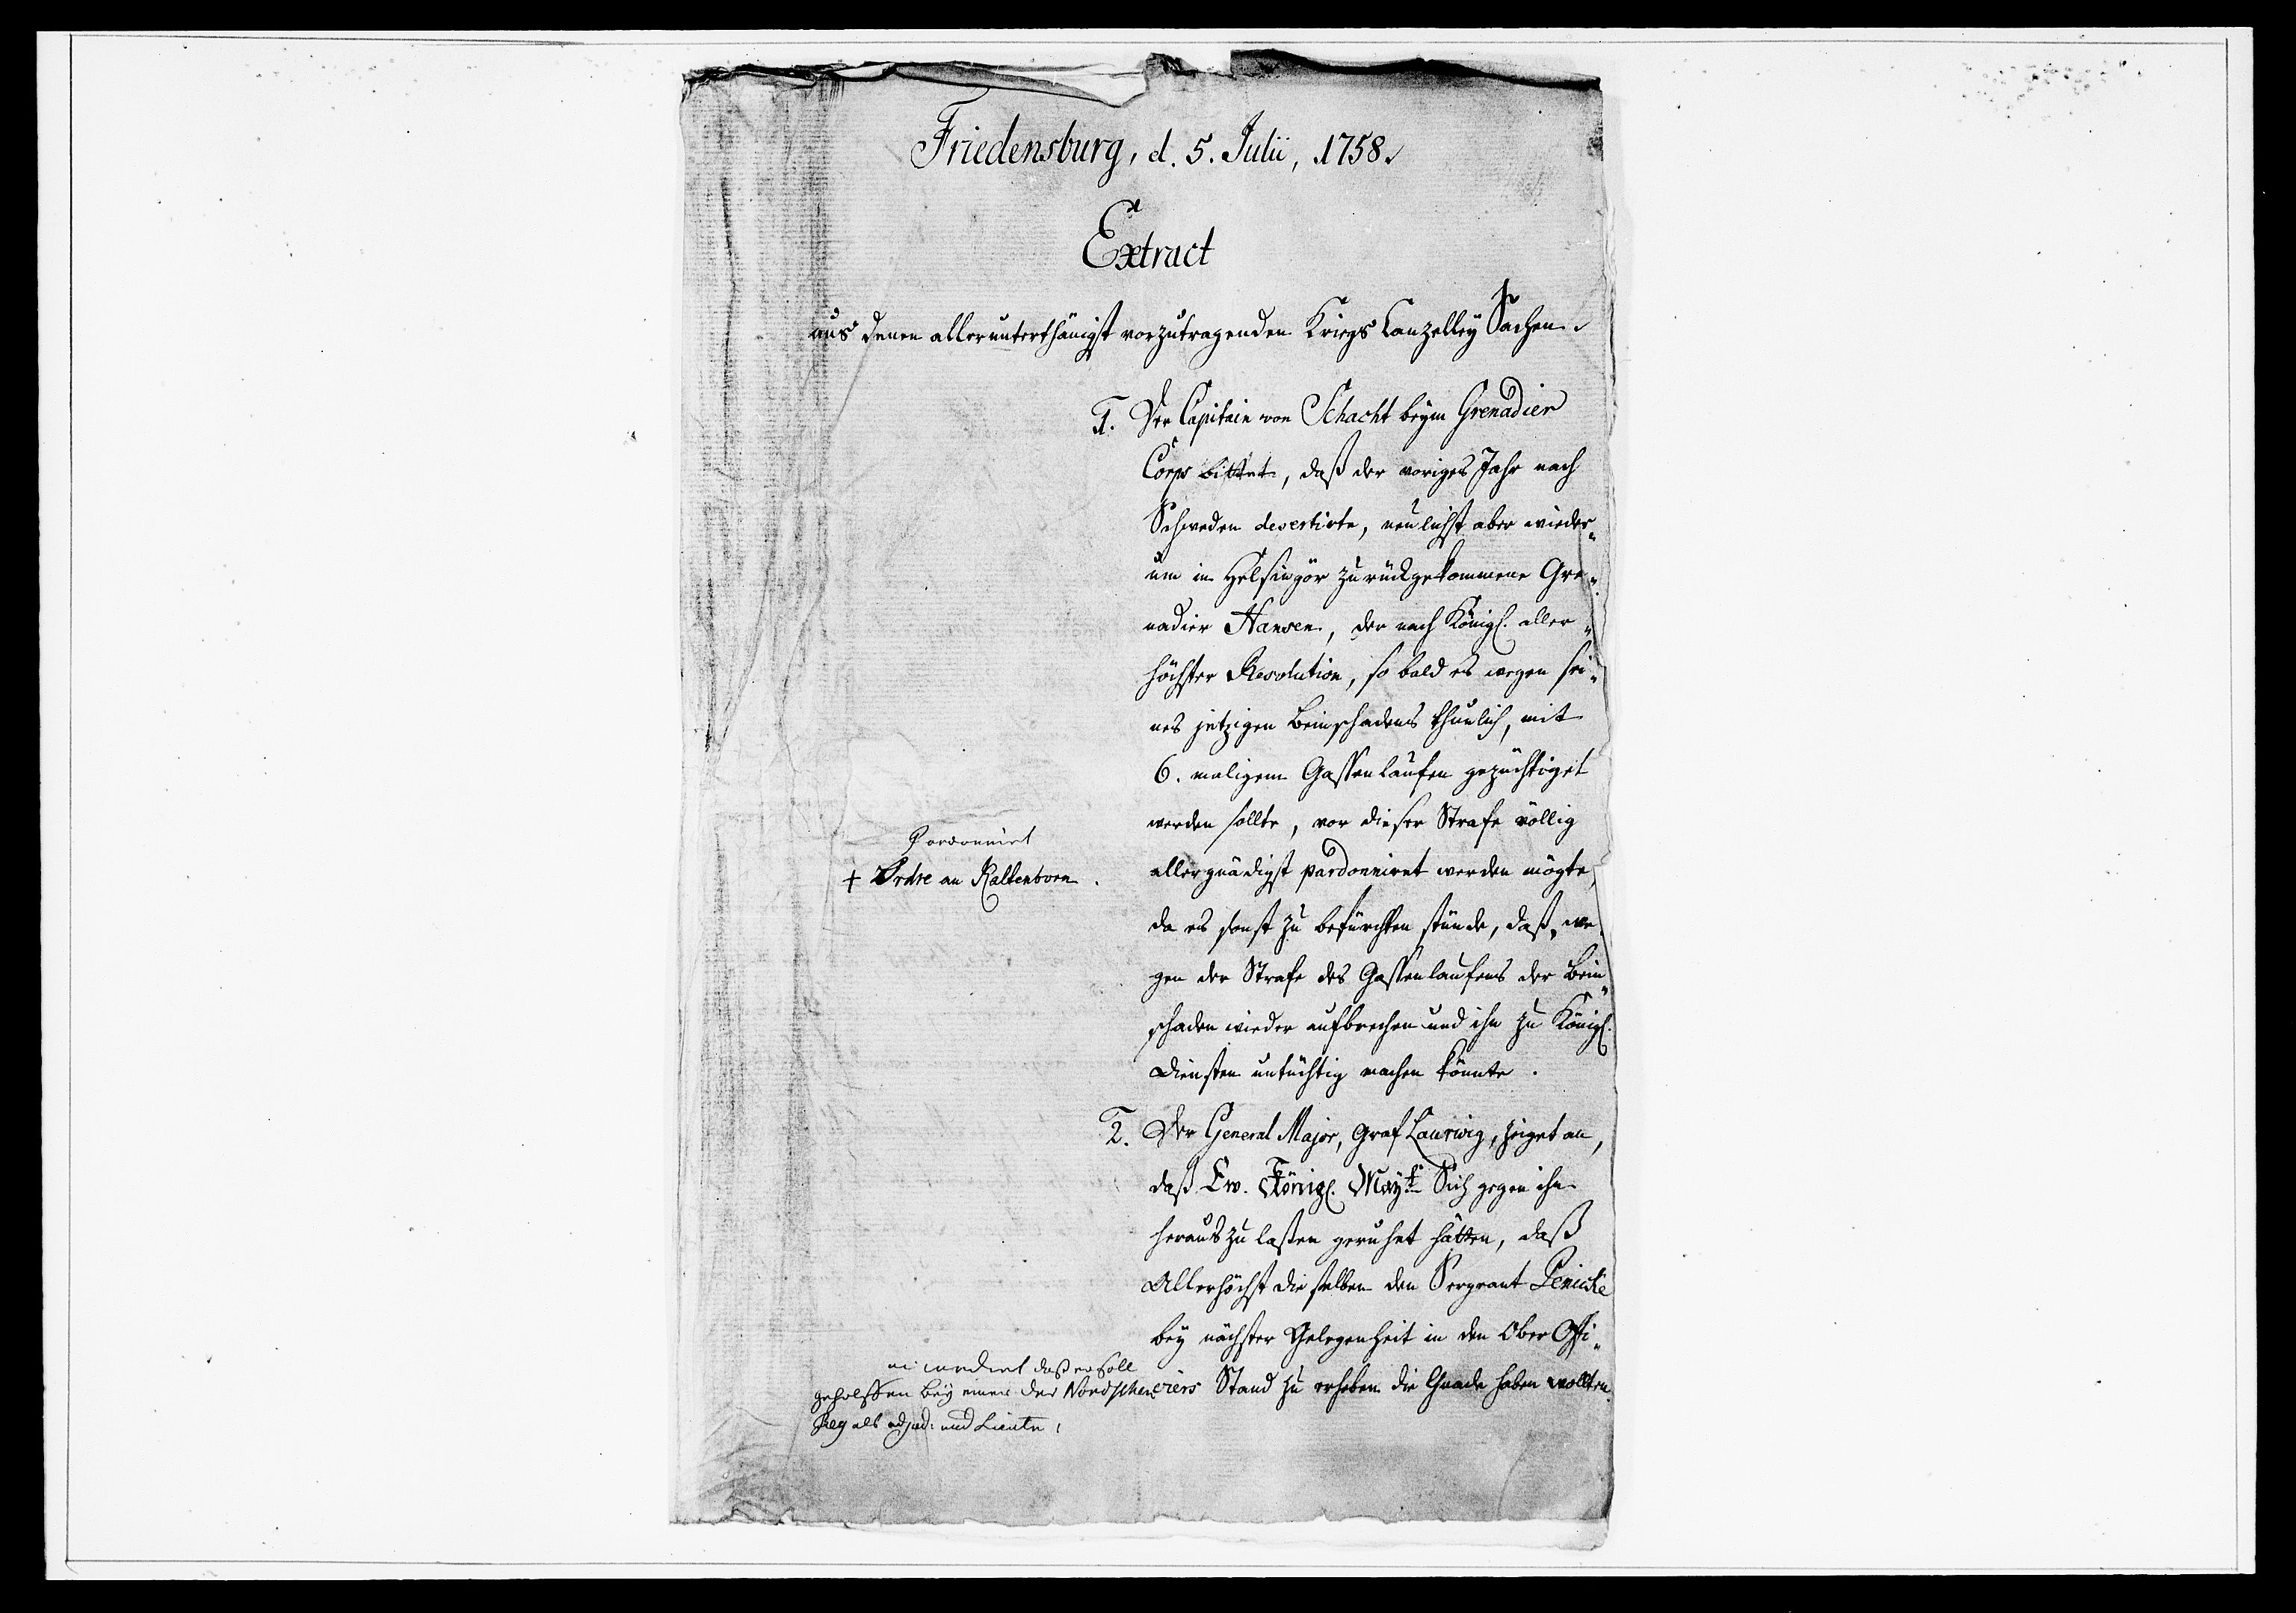 Friedensburg, d. 5. Julii, 1758.
Extract
aus denen allerunterthänigst vorzutragenden Kriegs Canzelley Sachen.
1. Der Capitain von Schacht beym Grenadier
Corps bittet, daß der voriges Jahr nach
Schweden desertirte, neulichst aber wieder„
um in Helsingör zurückgekommene Gre„
nadier Hansen, der nach Königl. aller„
höchster Resolution, so bald es wegen sei„
nes jetzigen Beinschadens thunlich, mit
6. maligem Gassenlaufen gezüchtiget
werden sollte, vor dieser Strafe völlig
allergnädigst pardonniret werden mögte,
da es sonst zu befürchten stünde, daß, we„
gen der Strafe des Gassenlaufens der Bein„
schaden wieder aufbrechen und ihn zu Königl.
Diensten untüchtig machen könnte.
Pardonnirt
+ Ordre an Kaltenborn.
2. Der General Major, Graf Laurwig, zeiget an,
daß Ew. Königl. Mayt. Sich gegen ihn
herauszulaßen geruhet hätten, daß
Allerhöchst dieselben den Sergeant Lenicke
bey nächster Gelegenheit in den Ober Offi„
ciers Stand zu erheben die Gnade haben wollten.
daß er soll
geholffen bey einer der Nordschen
Reg als adjud: und Lieute: